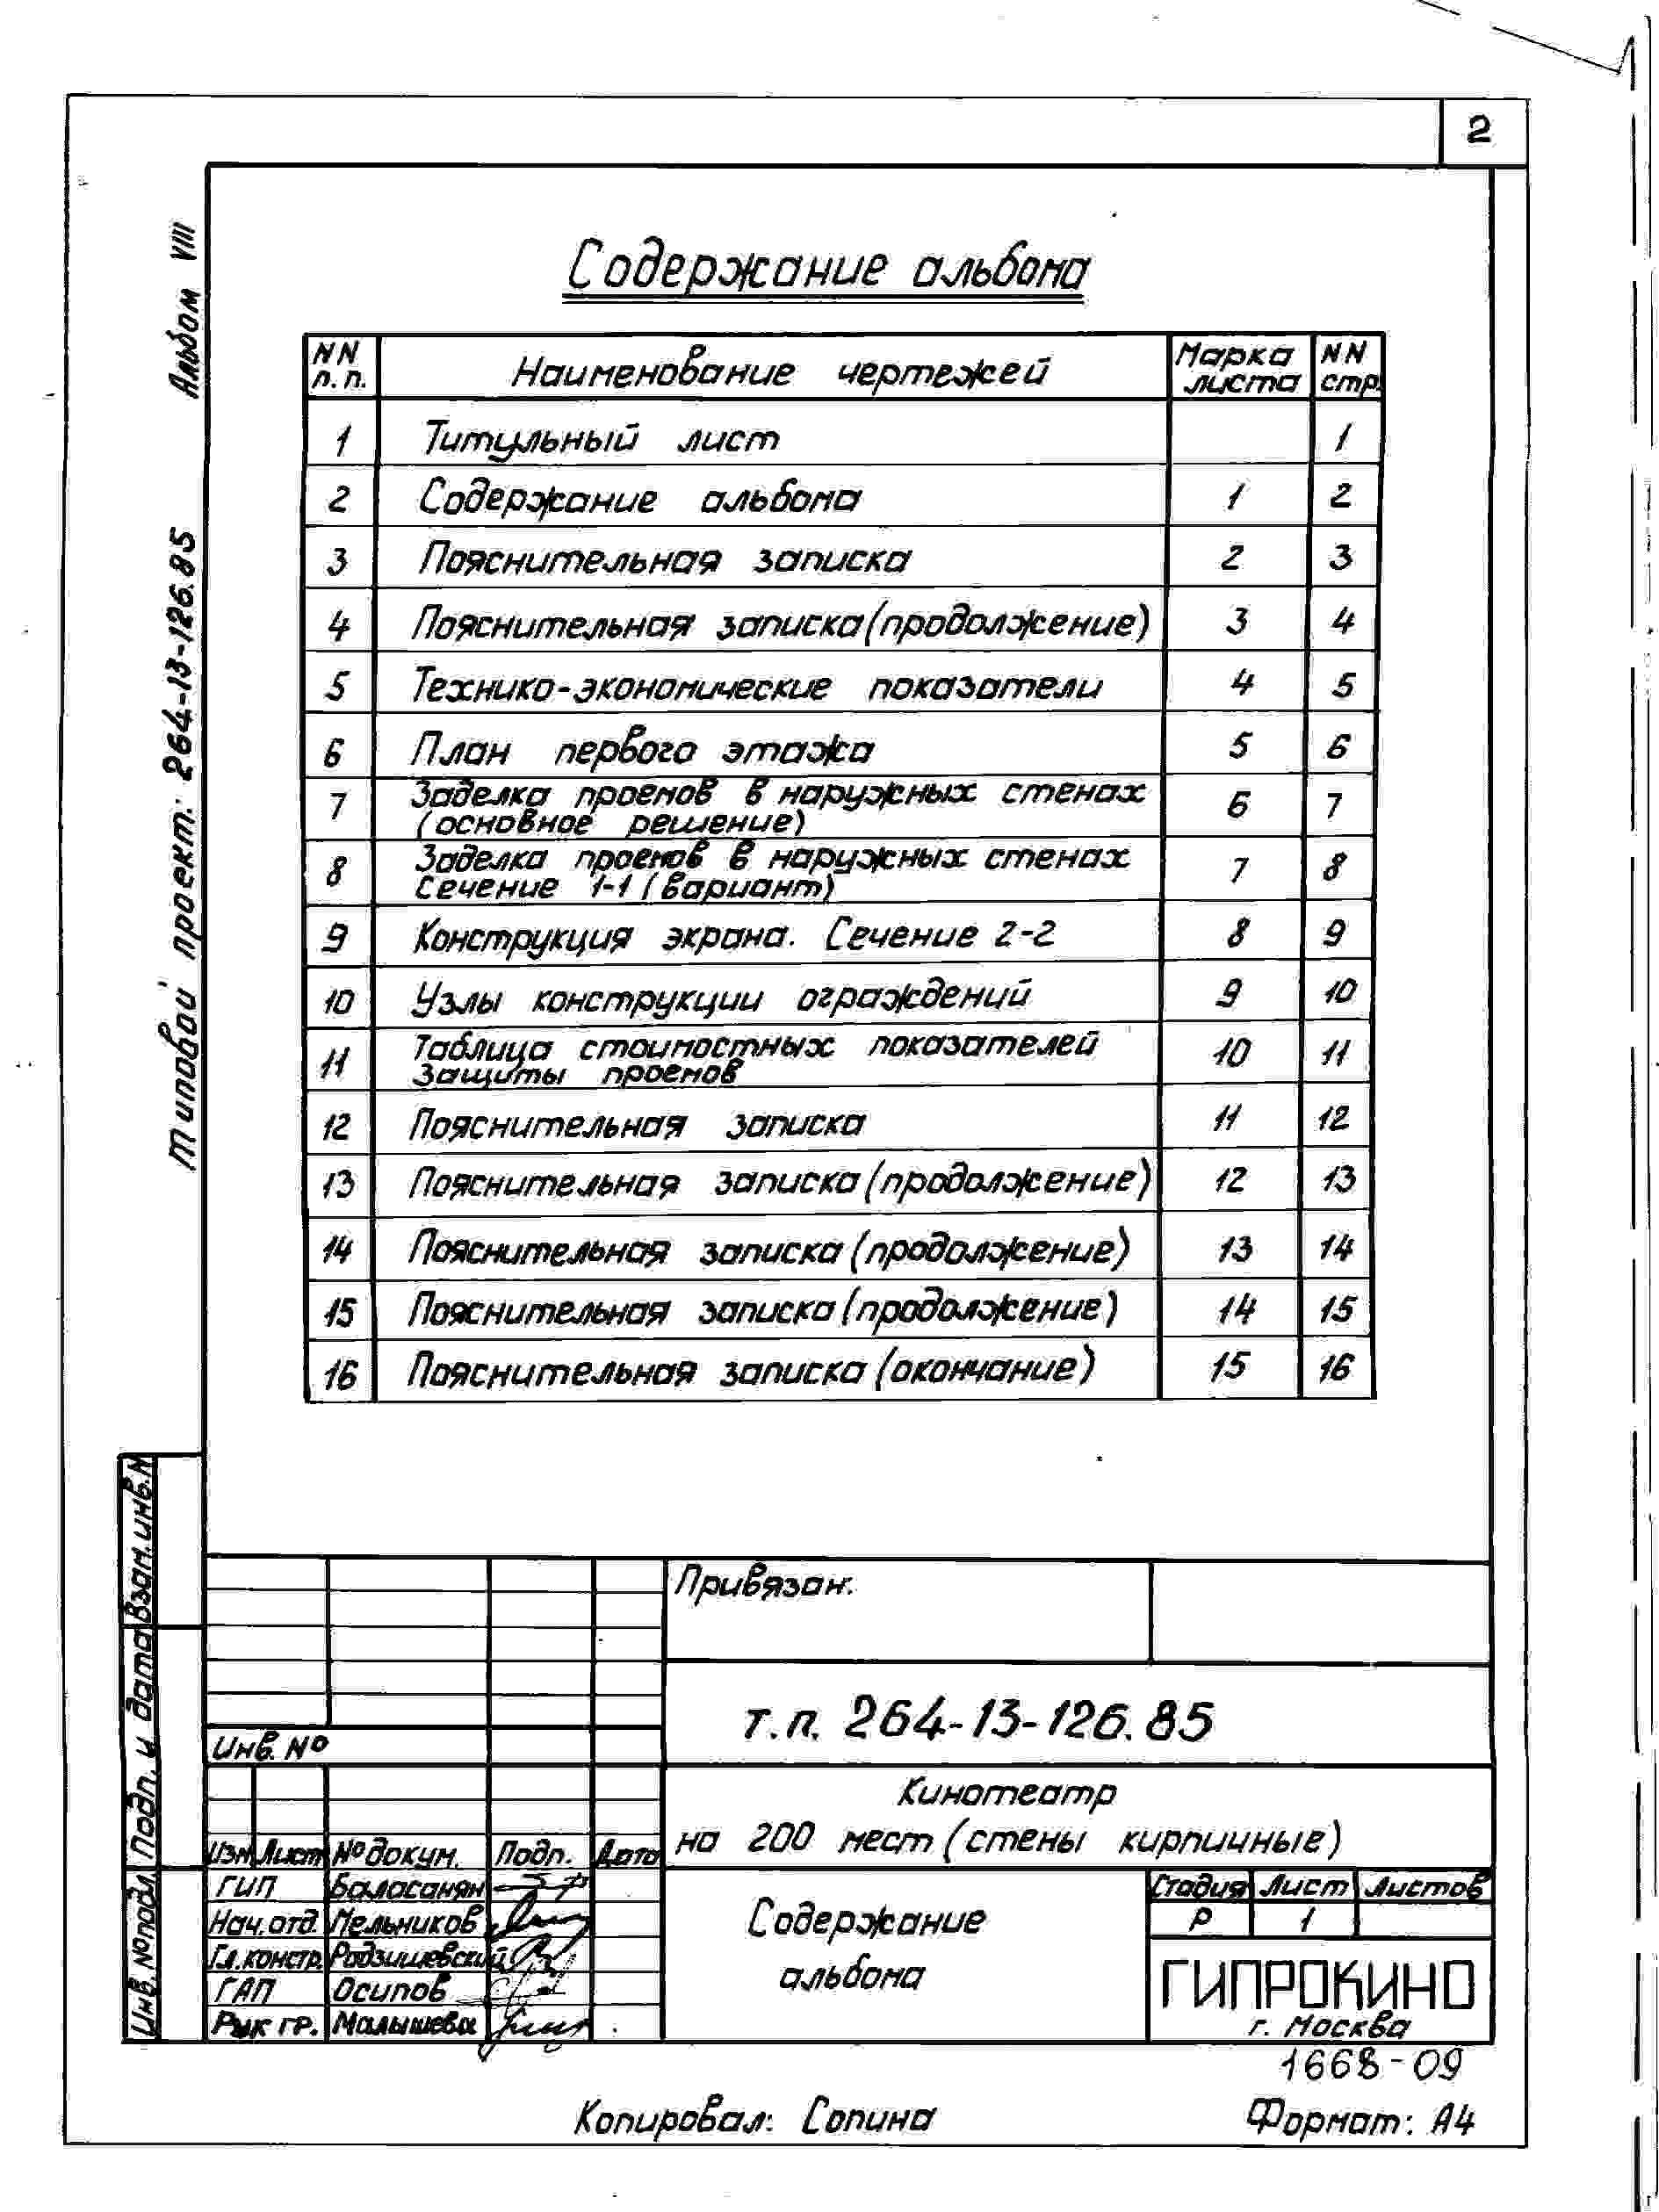 2
Альбом VIII
типовой проект: 264-13-126.85
Содержание альбома
NN п.п. Наименование чертежей Марка листа NN стр.
1 Титульный лист 1
2 Содержание альбома 1 2
3 Пояснительная записка 2 3
4 Пояснительная записка (продолжение) 3 4
5 Технико-экономические показатели 4 5
6 План первого этажа 5 6
7 Заделка проемов в наружных стенах (основное решение) 6 7
8 Заделка проемов в наружных стенах сечение 1-1 (вариант) 7 8
9 Конструкция экрана. Сечение 2-2 8 9
10 Узлы конструкции ограждений 9 10
11 Таблица стоимостных показателей защиты проемов 10 11
12 Пояснительная записка 11 12
13 Пояснительная записка (продолжение) 12 13
14 Пояснительная записка (продолжение) 13 14
15 Пояснительная записка (продолжение) 14 15
16 Пояснительная записка (окончание) 15 16
Взам.инв.N
Подп. и дата
Инв.№подл.
Привязан:
т.п. 264-13-126.85
Инв.№
Кинотеатр
на 200 мест (стены кирпичные)
Изм Лист №докум. Подп. Дата
ГИП Баласанян
Нач.отд. Мельников
Гл.констр. Родзишевский
ГАП Осипов
Рук гр. Малышева
Содержание
альбома
Стадия Лист Листов
Р 1
ГИПРОКИНО
г. Москва
1668-09
Копировал: Сопина
Формат: А4